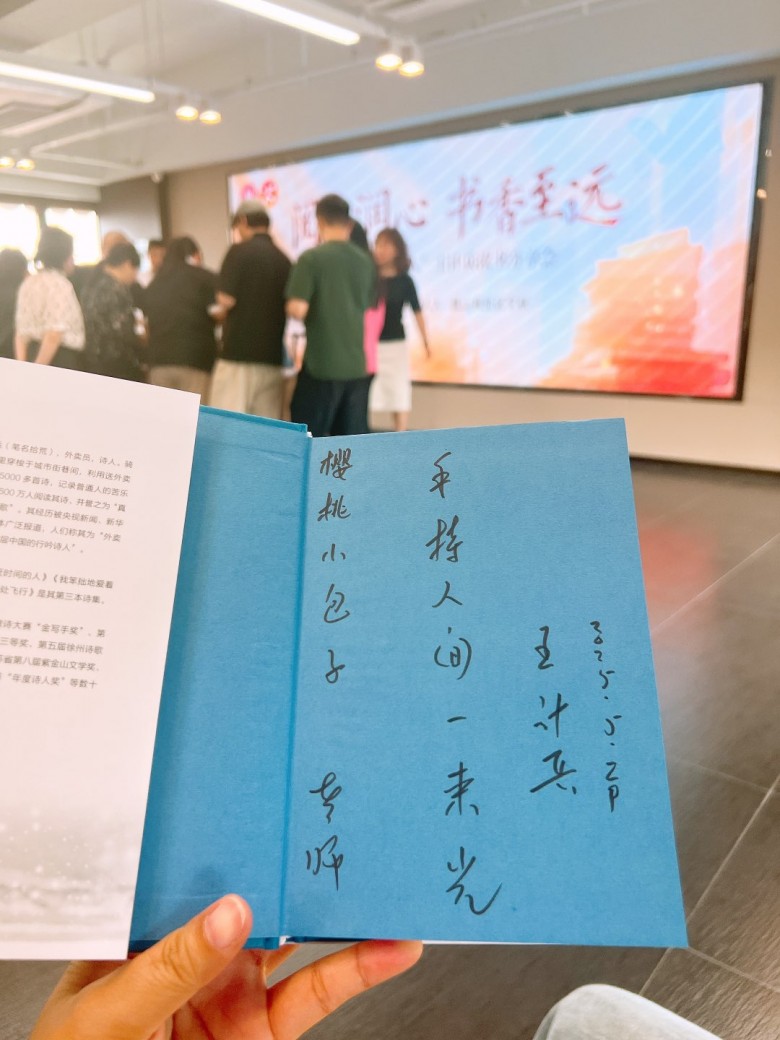 润心 书香至远
(笔名拾荒)，外卖员，诗人。骑
穿梭于城市街巷间，利用送外卖
5000多首诗，记录普通人的苦乐
600万人阅读其诗，并誉之为“真
歌”。其经历被央视新闻、新华
广泛报道，人们称其为“外卖
届中国的行吟诗人”。
时间的人》《我笨拙地爱着
处飞行》是其第三本诗集。
诗大赛“金写手奖”、第
三等奖、第五届徐州诗歌
省第八届紫金山文学奖、
“年度诗人奖”等数十
樱桃小包子 老师
手持人间一束光
王计兵